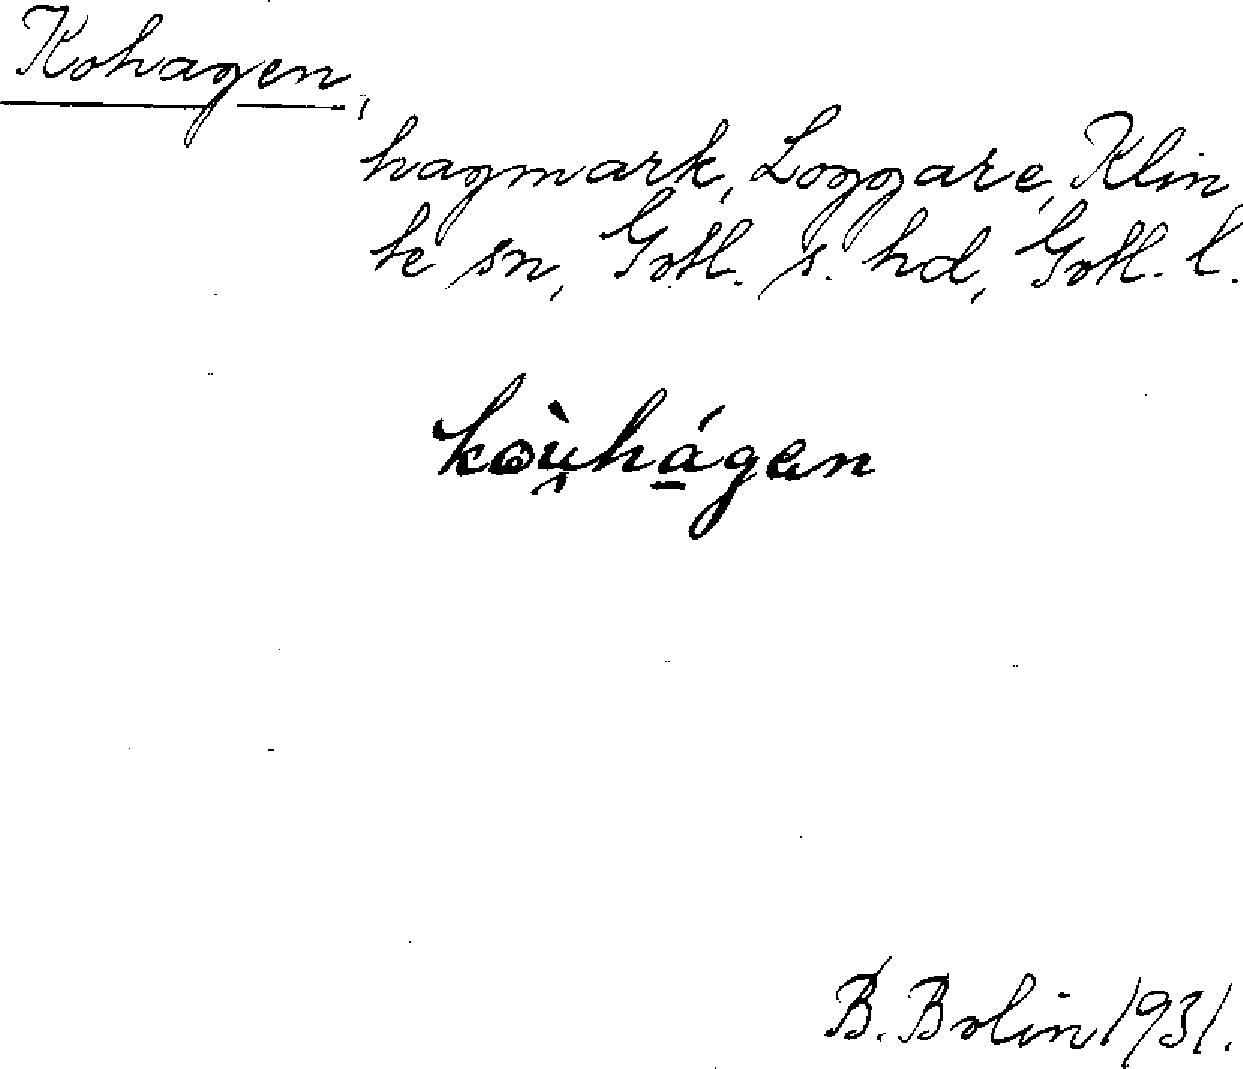 Kohagen,
hagmark, Loggare, Klin
te sn, Gotl. s. hd, Gotl. l.
koùhágen
B. Bolin 1931.